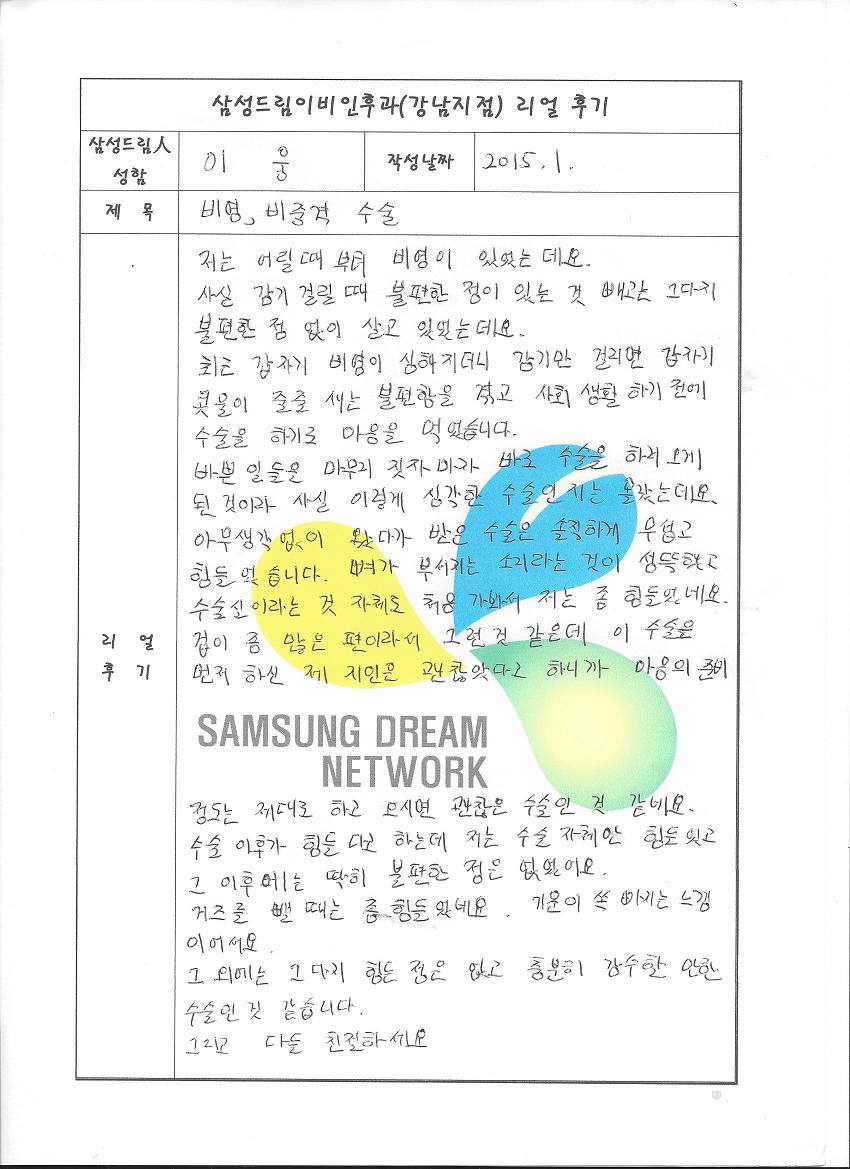 삼성드림이비인후과(강남지점) 리얼 후기
삼성드림人
성함
이 웅
작성날짜
2015.1.
제 목
비염, 비중격 수술
리 얼
후 기
저는 어릴때 부터 비염이 있었는데요.
사실 감기 걸릴 때 불편한 점이 있는 것 빼곤 그다지
불편한 점 없이 살고 있었는데요.
최근 갑자기 비염이 심해지더니 감기만 걸리면 갑자기
콧물이 줄줄 새는 불편함을 겪고 사회 생활 하기 전에
수술을 하기로 마음을 먹었습니다.
바쁜 일들을 마무리 짓자 마자 바로 수술을 하러 오게
된 것이라 사실 이렇게 심각한 수술인지는 몰랐는데요.
아무생각 없이 왔다가 받은 수술은 솔직하게 무섭고
힘들었습니다. 뼈가 부서지는 소리라는 것이 섬뜩했고
수술실이라는 것 자체도 처음 가봐서 저는 좀 힘들었네요.
겁이 좀 많은 편이라서 그런것 같은데 이 수술을
먼저 하신 제 지인은 괜찮았다고 하니까 마음의 준비
SAMSUNG DREAM
NETWORK
정도는 제대로 하고 오시면 괜찮은 수술인 것 같네요.
수술 이후가 힘들 다고 하는데 저는 수술 자체만 힘들었고
그 이후에는 딱히 불편한 점은 없었어요.
거즈를 뺄 때는 좀 힘들었네요. 기운이 쏙 빠지는 느낌
이어서요.
그 외에는 그다지 힘든 점은 없고 충분히 감수할 만한
수술인것 같습니다.
그리고 다들 친절하세요